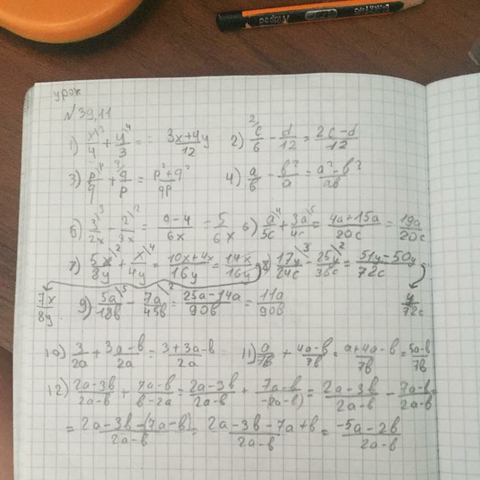 урок
№39.11
1) x/4 + y/3 = 3x+4y/12 2) c/6 - d/12 = 2c-d/12
3) p/q + q/p = p²+q²/qp 4) a/b - b/a = a²-b²/ab
5) 3/2x - 2/3x = 9-4/6x = 5/6x 6) a/5c + 3a/4c = 4a+15a/20c = 19a/20c
7) 5x/8y + x/4y = 10x+4x/16y = 14x/16y 8) 17y/24c - 25y/36c = 51y-50y/72c
7x/8y 9) 5a/18b - 7a/45b = 25a-14a/90b = 11a/90b y/72c
10) 3/2a + 3a-b/2a = 3+3a-b/2a 11) a/7b + 4a-b/7b = a+4a-b/7b = 5a-b/7b
12) 2a-3b/2a-b + 7a-b/b-2a = 2a-3b/2a-b + 7a-b/-(2a-b) = 2a-3b/2a-b - 7a-b/2a-b =
= 2a-3b-(7a-b)/2a-b = 2a-3b-7a+b/2a-b = -5a-2b/2a-b